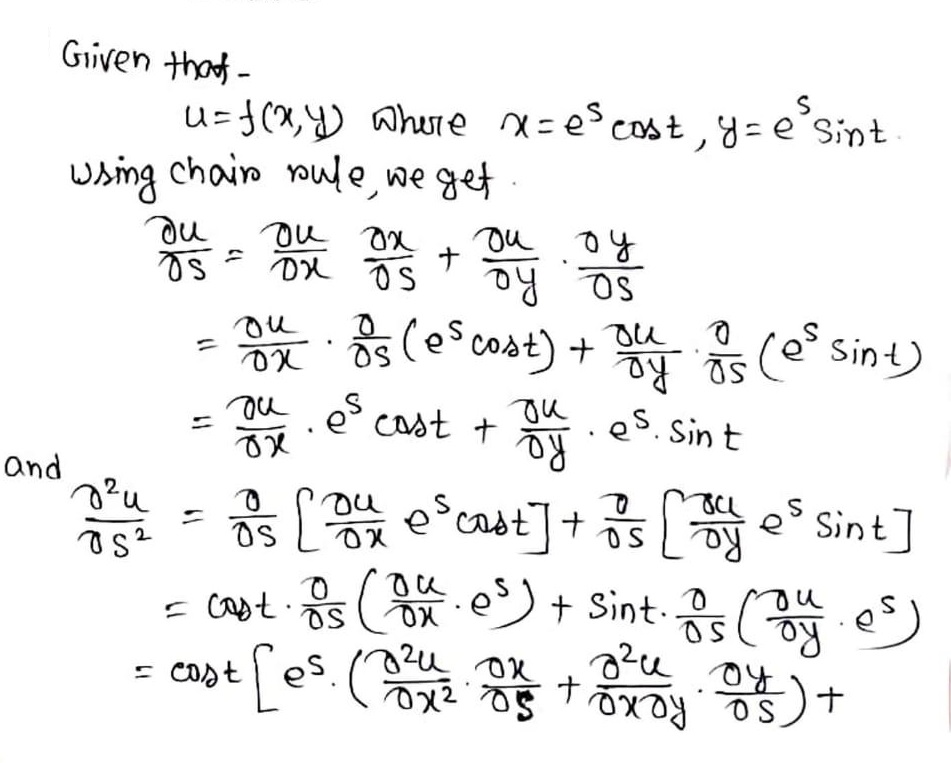 Given that -
u = f(x,y) where x = e^s cost, y = e^s sint.
using chain rule, we get.
∂u/∂s = ∂u/∂x ∂x/∂s + ∂u/∂y · ∂y/∂s
= ∂u/∂x · ∂/∂s (e^s cost) + ∂u/∂y · ∂/∂s (e^s sint)
= ∂u/∂x · e^s cost + ∂u/∂y · e^s. sint
and
∂²u/∂s² = ∂/∂s [∂u/∂x e^s cost] + ∂/∂s [∂u/∂y e^s sint]
= cost · ∂/∂s (∂u/∂x · e^s) + sint. ∂/∂s (∂u/∂y . e^s)
= cost [e^s. (∂²u/∂x² · ∂x/∂s + ∂²u/∂x∂y · ∂y/∂s) +